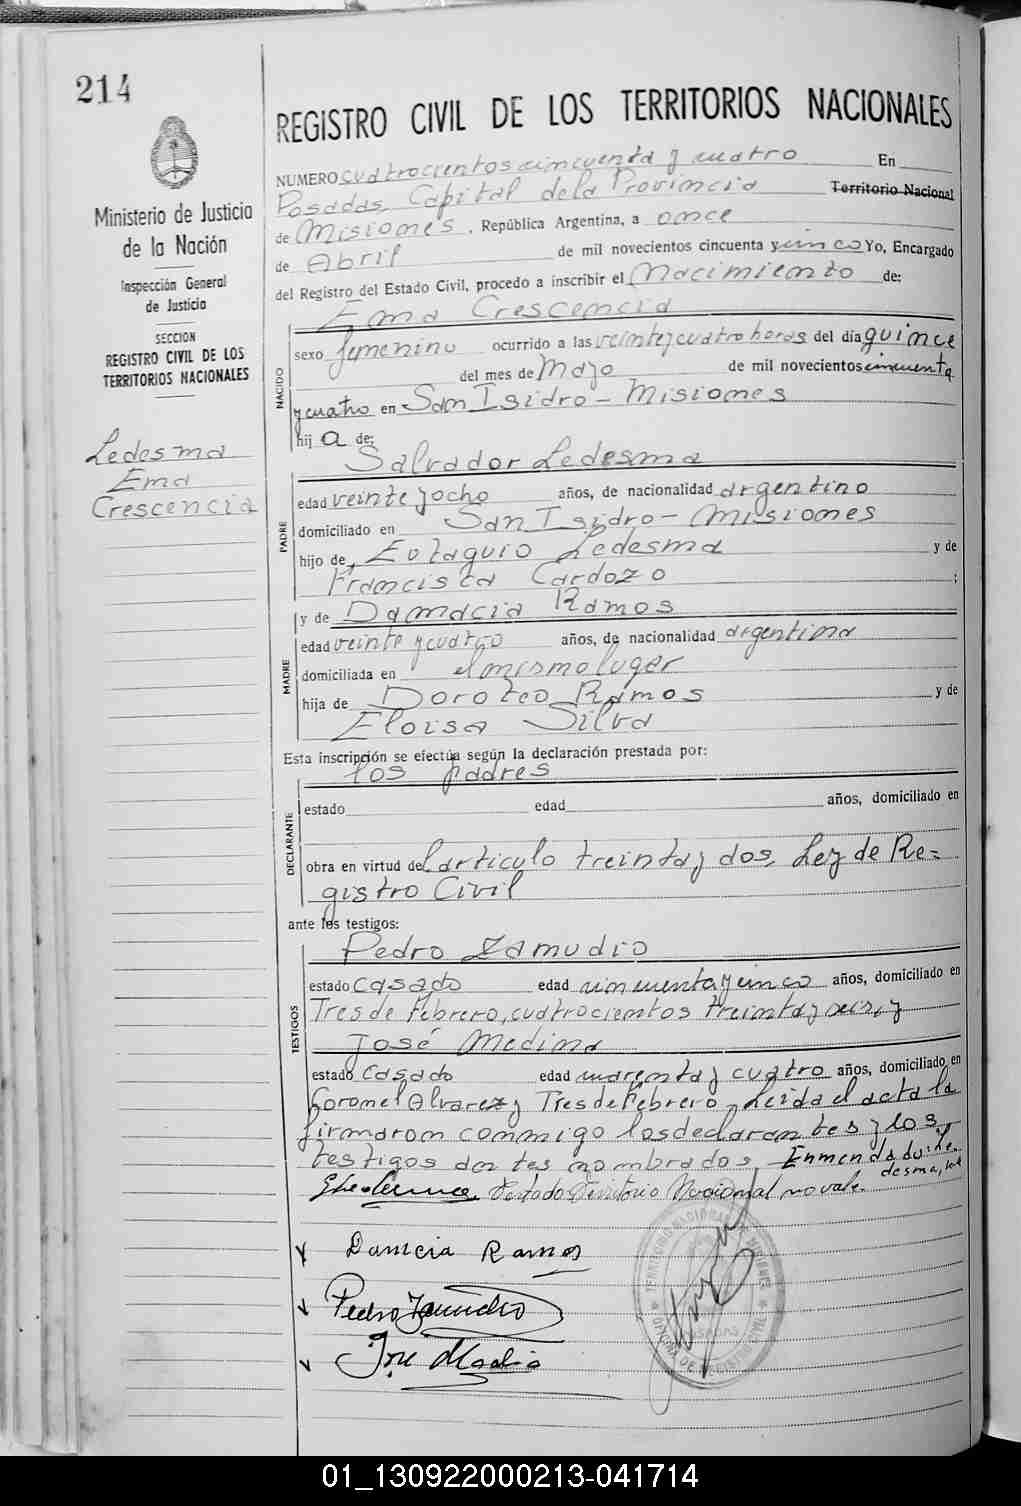 214
Ministerio de Justicia
de la Nación
Inspección General
de Justicia
SECCION
REGISTRO CIVIL DE LOS
TERRITORIOS NACIONALES
Ledesma
Ema
Crescencia
REGISTRO CIVIL DE LOS TERRITORIOS NACIONALES
NUMERO cuatrocientos cincuenta y cuatro En
Posadas, Capital de la Provincia Territorio Nacional
de Misiones, República Argentina, a once
de Abril de mil novecientos cincuenta y cinco Yo, Encargado
del Registro del Estado Civil, procedo a inscribir el Nacimiento de:
Ema Crescencia
NACIDO
sexo femenino ocurrido a las veinte y cuatro horas del día quince
del mes de Mayo de mil novecientos cincuenta
y cuatro en San Isidro - Misiones
hija de:
Salvador Ledesma
PADRE
edad veinte y ocho años, de nacionalidad argentino
domiciliado en San Isidro - Misiones
hijo de, Eutaquio Ledesma y de
Francisca Cardozo ;
y de Damacia Ramos
MADRE
edad veinte y cuatro años, de nacionalidad argentina
domiciliada en el mismo lugar
hija de Doroteo Ramos y de
Eloisa Silva
Esta inscripción se efectúa según la declaración prestada por:
los padres
DECLARANTE
estado edad años, domiciliado en
obra en virtud del articulo treinta y dos, Ley de Re=
gistro Civil
ante los testigos:
Pedro Zamudio
TESTIGOS
estado casado edad cincuenta y cinco años, domiciliado en
Tres de Febrero, cuatrocientos treinta y seis, y
José Medina
estado casado edad cuarenta y cuatro años, domiciliado en
Coronel Alvarez y Tres de Febrero, Leida el acta la
firmaron conmigo los declarantes y los
testigos antes nombrados, Enmendado:
desma,
Testado Territorio Nacional no vale.
Damacia Ramos
Pedro Zamudio
José Medina
01_130922000213-041714